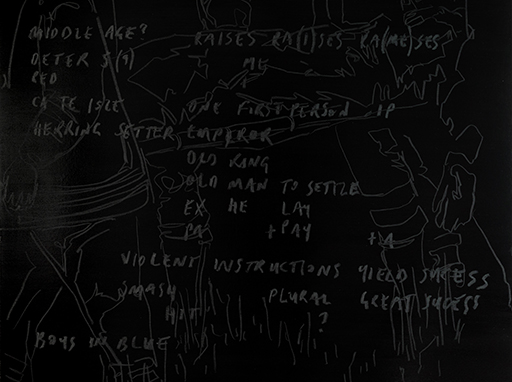 MIDDLE AGE? RAISES RA(I)SES RA(ME)SES
DETER S(9) ME
RED
CA TE ISLE ONE FIRST PERSON IP
HERRING SETTER EMPEROR
OLD KING
OLD MAN TO SETTLE
EX HE LAY
PA + PAY + A
VIOLENT INSTRUCTIONS YIELD SUCESS
SMASH PLURAL GREAT SUCESS
HIT ?
BOYS IN BLUE